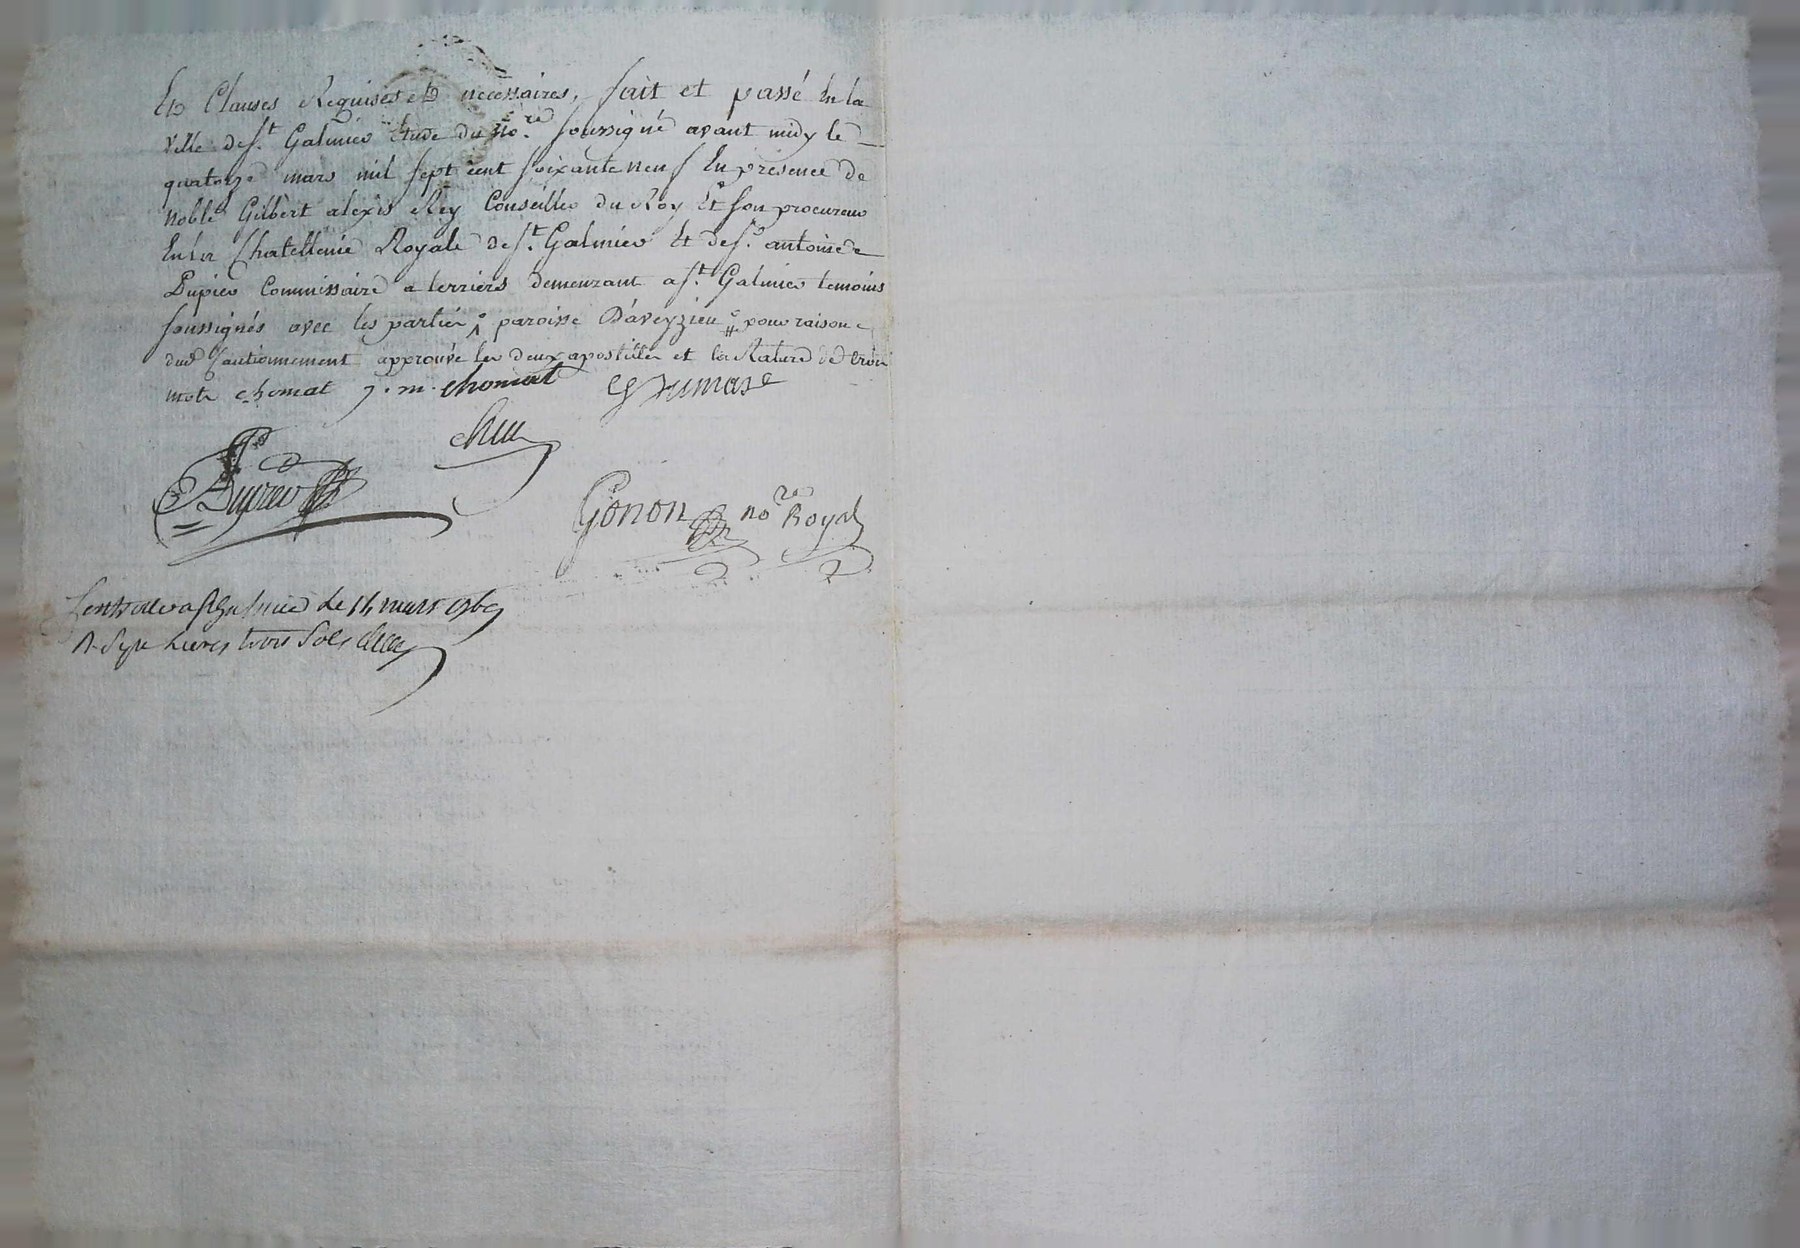 Et Clauses Requises et necessaires, fait et passé En la
ville de St. Galmier Etude du nore. soussigné avant midy le
quatorze mars mil sept cent soixante neuf En presence de
noble Gilbert alexis Rey Conseiller du Roy Et son procureur
En la Chatellenie Royale de St. Galmier Et de sr. antoine
Dupier Commissaire a terriers demeurant a St. Galmier temoins
soussignés avec les parties paroisse D'aveyzieu # pour raison
dud Cautionnement approuvé les deux apostilles et la Rature de trois
mots chomat j. m. chomat Dumas
Dupier
Gonon nore Royal
Controllé a St Galmier le 14 mars 1769
R. sept Livres trois sols